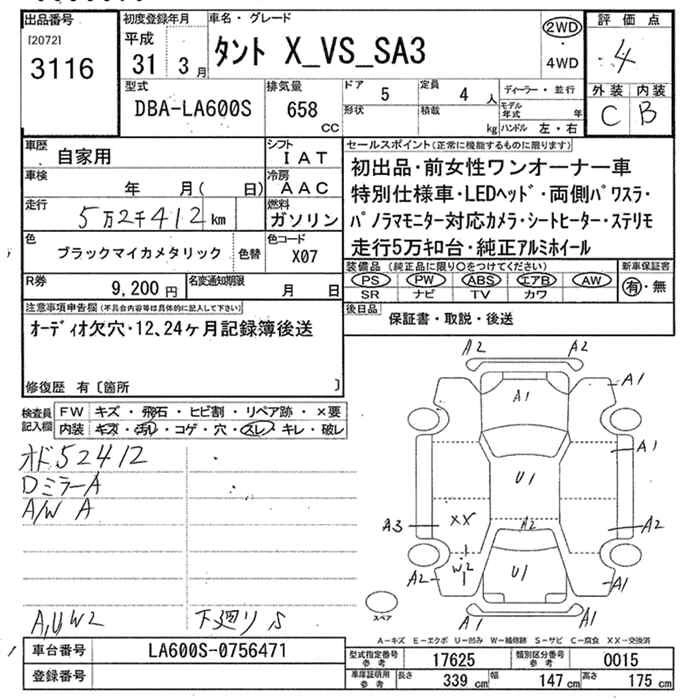 出品番号
[2072]
3116
初度登録年月
平成
31 3月
車名・グレード
タント X_VS_SA3
2WD
・
4WD
評価点
4
外装 内装
C B
型式
DBA-LA600S
排気量
658
CC
ドア 5
定員 4 人
形状
積載 kg
ディーラー・並行
モデル年式 年
ハンドル 左・右
車歴
自家用
シフト
IAT
車検
年 月( 日)
冷房
AAC
走行
5万2千412km
燃料
ガソリン
色
ブラックマイカメタリック
色替
色コード
X07
R券
9,200円
名変通知期限
月 日
セールスポイント(正常に機能するものに限ります)
初出品・前女性ワンオーナー車
特別仕様車・LEDヘッド・両側パワスラ・
パノラマモニター対応カメラ・シートヒーター・ステリモ
走行5万キロ台・純正アルミホイール
装備品(純正品に限り○をつけてください)
PS PW ABS エアB AW
SR ナビ TV カワ
新車保証書
有・無
後日品
保証書・取説・後送
注意事項申告欄(不具合内容等は具体的に記入して下さい)
オーディオ欠穴・12、24ヶ月記録簿後送
修復歴 有〔箇所 〕
検査員記入欄
FW キズ・飛石・ヒビ割・リペア跡・×要
内装 キズ・汚れ・コゲ・穴・スレ・キレ・破レ
オド52412
DミラーA
A/W A
A,U,W2
下廻りS
A2 A2
A1
A1
A1
U1
A3
XX
A2
A2
W2
A2
U1
A1
スペア
A-キズ E-エクボ U-凹み W-補修跡 S-サビ C-腐食 XX-交換済
車台番号
LA600S-0756471
登録番号
型式指定番号参考
17625
類別区分番号参考
0015
車庫証明用参考
長さ 339cm
幅 147cm
高さ 175cm